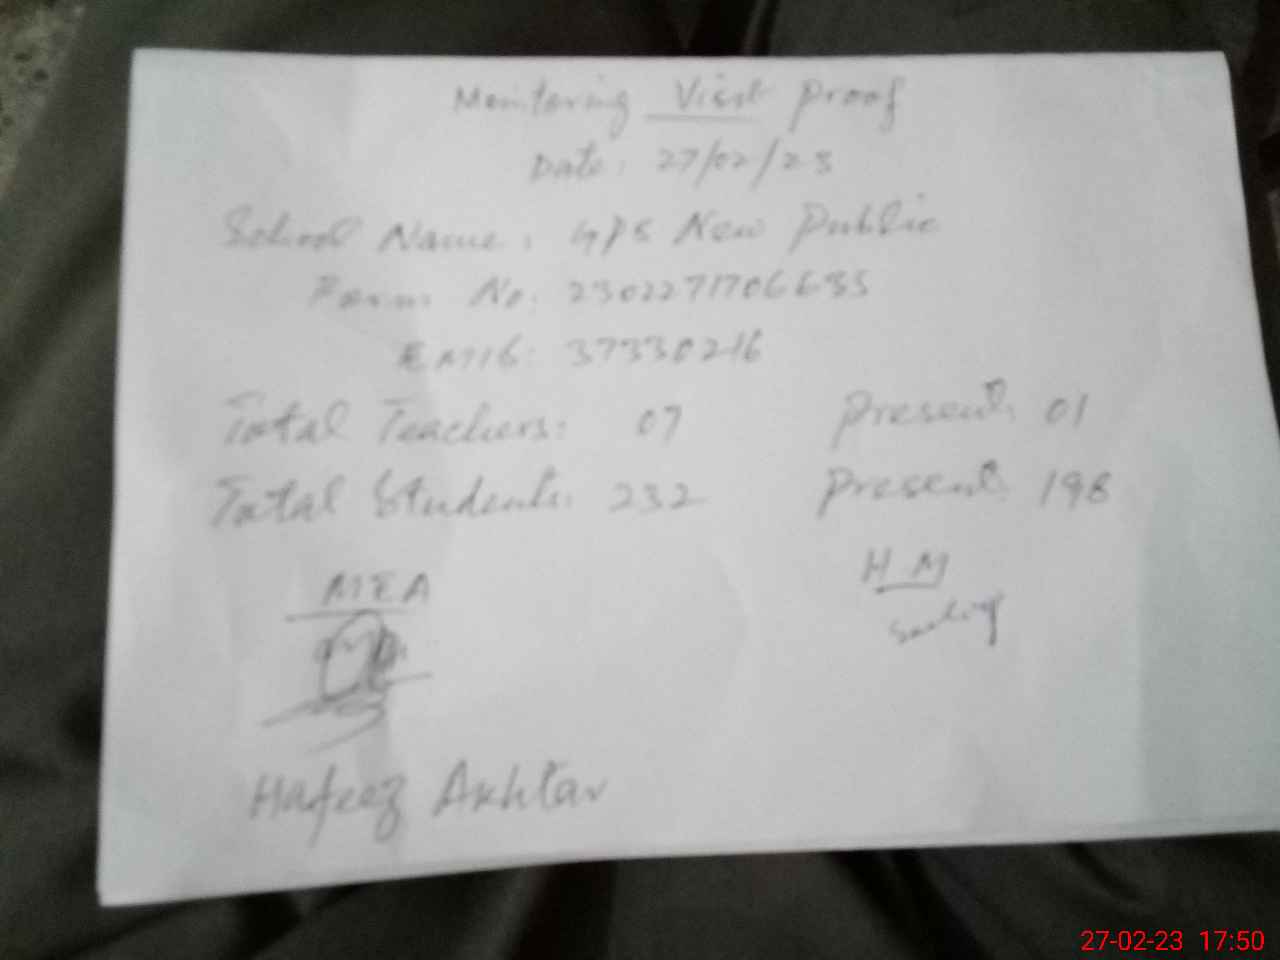 Monitoring Visit Proof
Date: 27/02/23
School Name: GPS New Public
Form No: 2302271706635
EMIS: 37330216
Total Teachers: 07 Present: 01
Total Students: 232 Present: 198
MEA
HM
Hafeez Akhtar
27-02-23 17:50